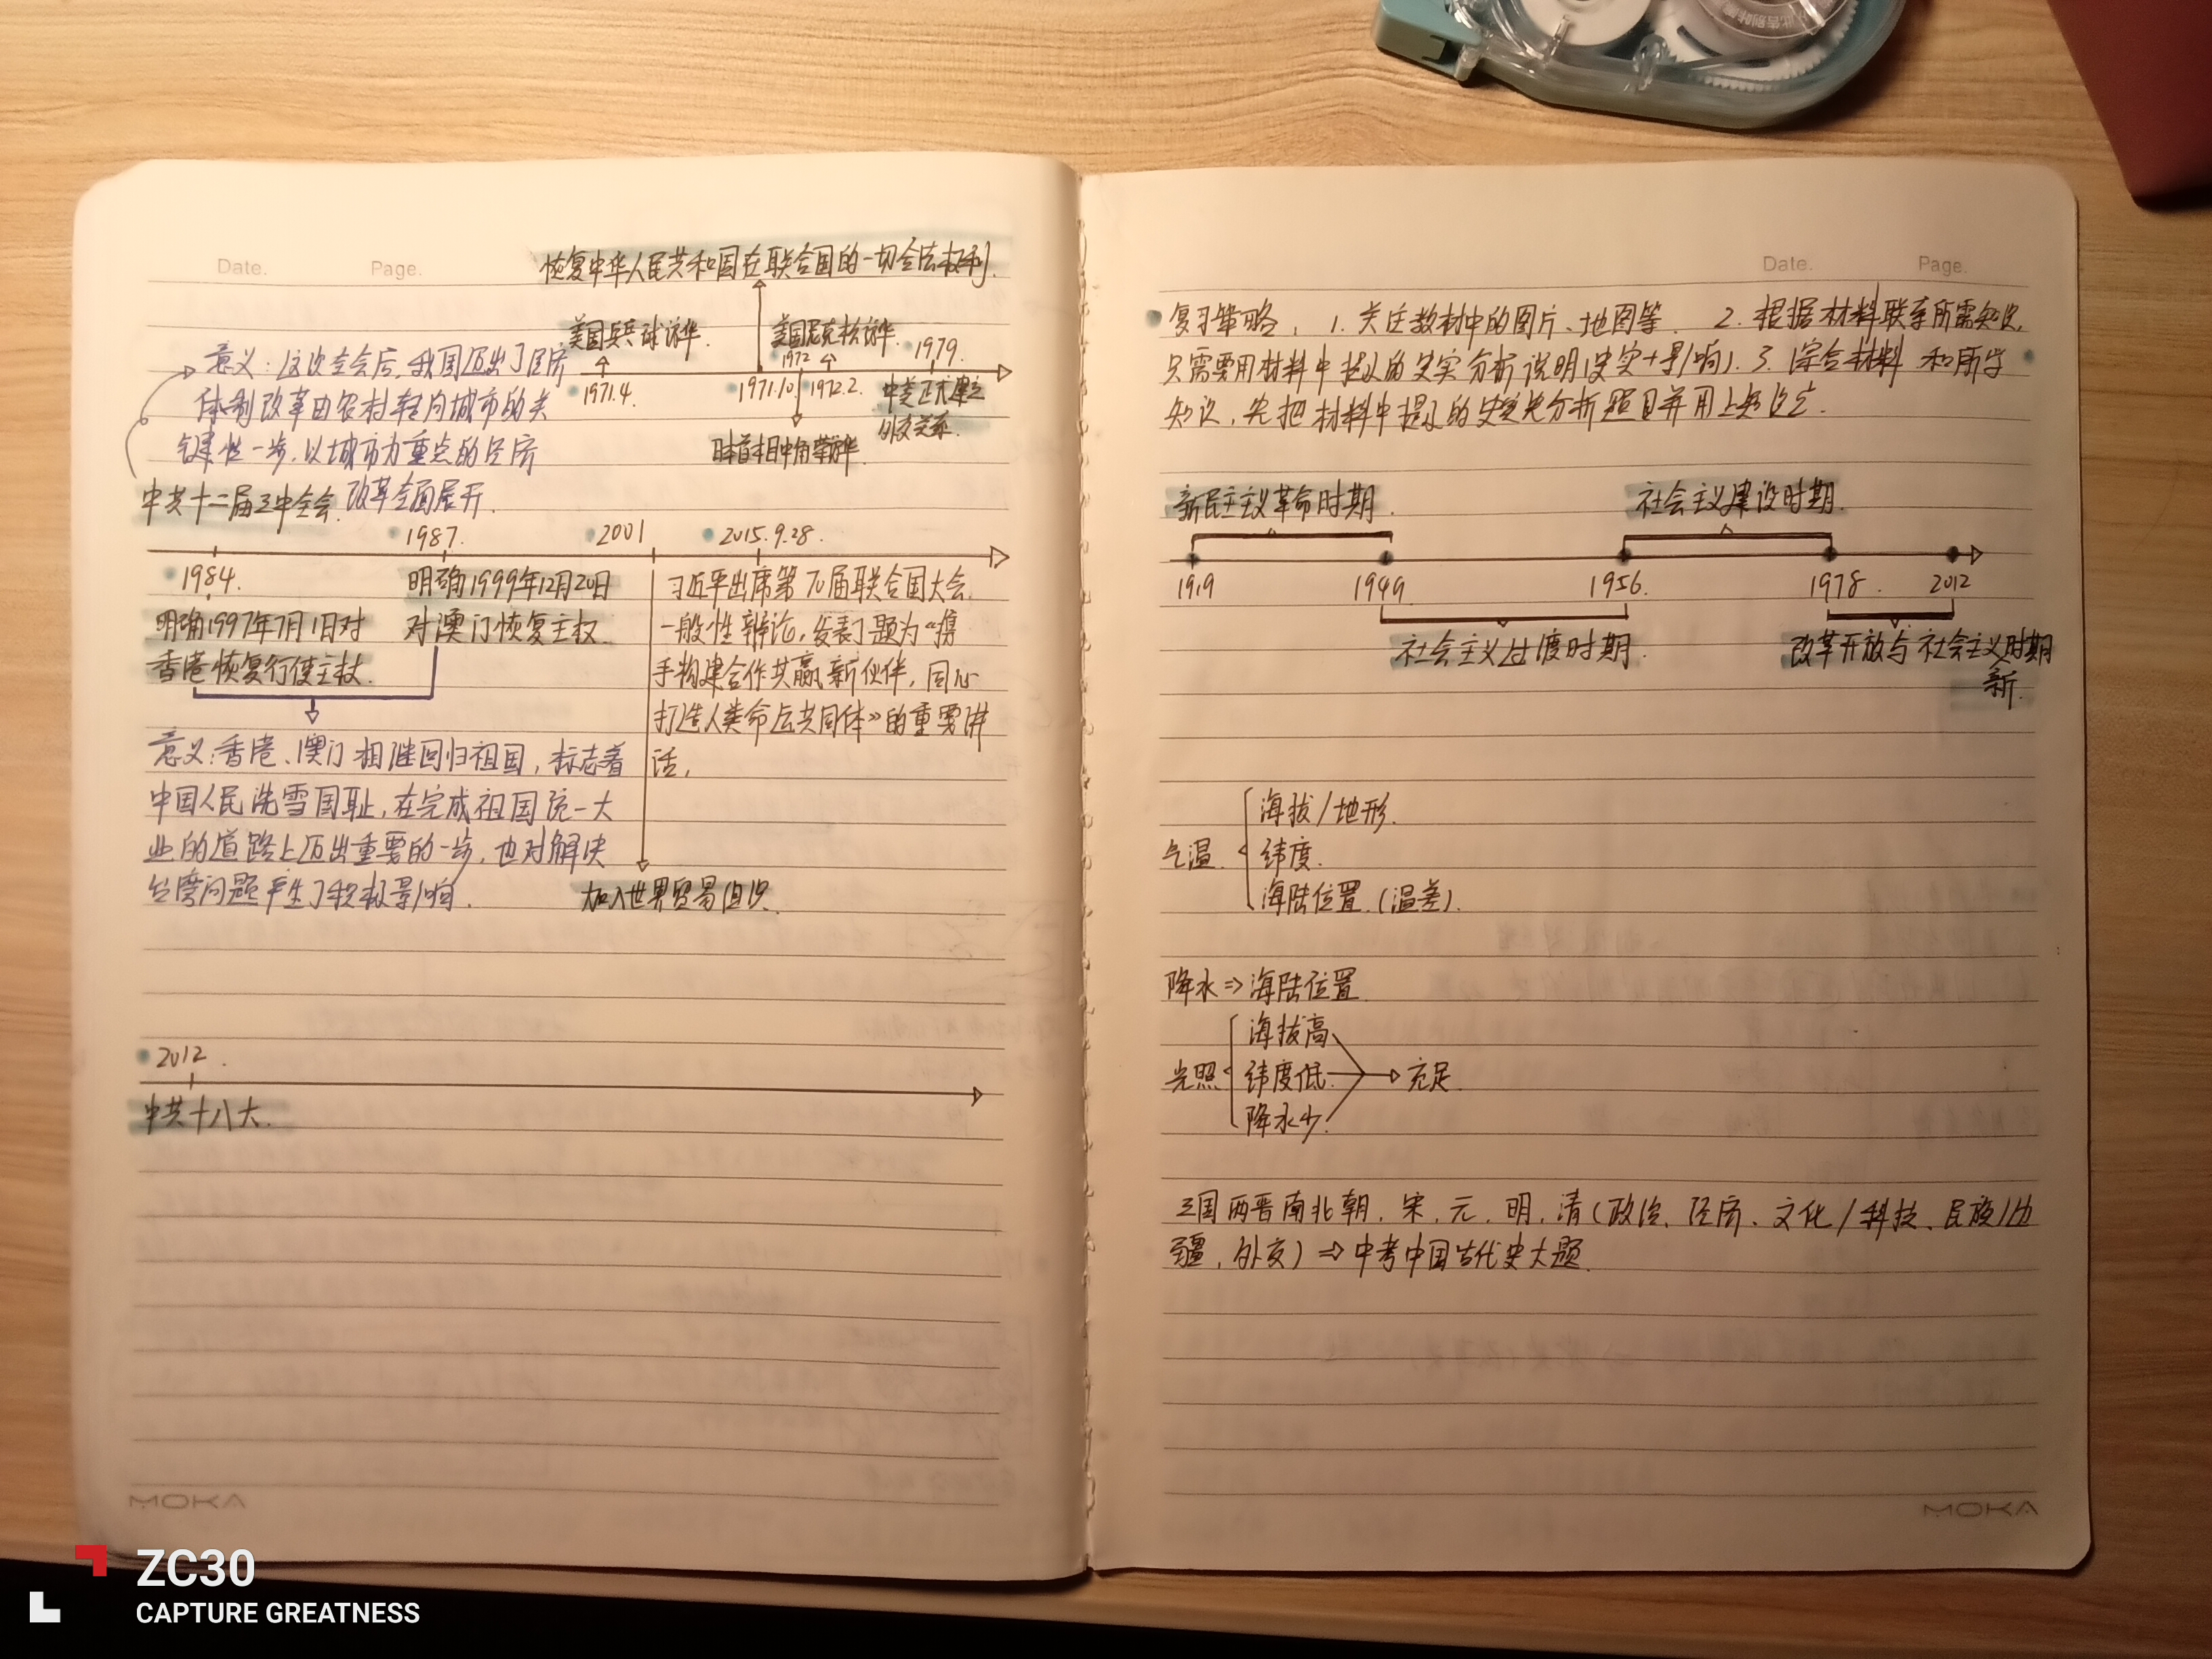 Date.
Page.
恢复中华人民共和国在联合国的一切合法权利.
美国乒乓球访华.
美国尼克松访华.
1971.4.
1971.10
1972
1972.2.
1979.
中美正式建立
外交关系.
日本首相田中角荣访华.
意义:这次全会后,我国迈出了经济
体制改革由农村转向城市的关
键性一步,以城市为重点的经济
改革全面展开.
中共十二届三中全会.
1984.
1987.
2001
2015.9.28.
明确1997年7月1日对
香港恢复行使主权.
明确1999年12月20日
对澳门恢复主权.
习近平出席第70届联合国大会
一般性辩论,发表了题为“携
手构建合作共赢新伙伴,同心
打造人类命运共同体》的重要讲
话,
意义:香港、澳门相继回归祖国,标志着
中国人民洗雪国耻,在完成祖国统一大
业的道路上迈出重要的一步,也对解决
台湾问题产生了积极影响.
加入世界贸易组织.
2012.
中共十八大.
MOKA
Date.
Page.
复习策略, 1.关注教材中的图片、地图等. 2.根据材料联系所需知识,
只需要用材料中提及的史实分析说明(史实+影响). 3.综合材料和所学
知识,先把材料中提及的史实先分析题目并用上
新民主主义革命时期.
社会主义建设时期.
1919
1949
1956
1978.
2012
社会主义过渡时期.
改革开放与社会主义时期
新.
气温.
海拔/地形.
纬度.
海陆位置.(温差).
降水⇒海陆位置
光照
海拔高
纬度低
降水少.
充足.
三国两晋南北朝,宋,元,明,清(政治、经济、文化/科技、民族/边
疆,外交)⇒中考中国古代史大题.
MOKA
ZC30
CAPTURE GREATNESS